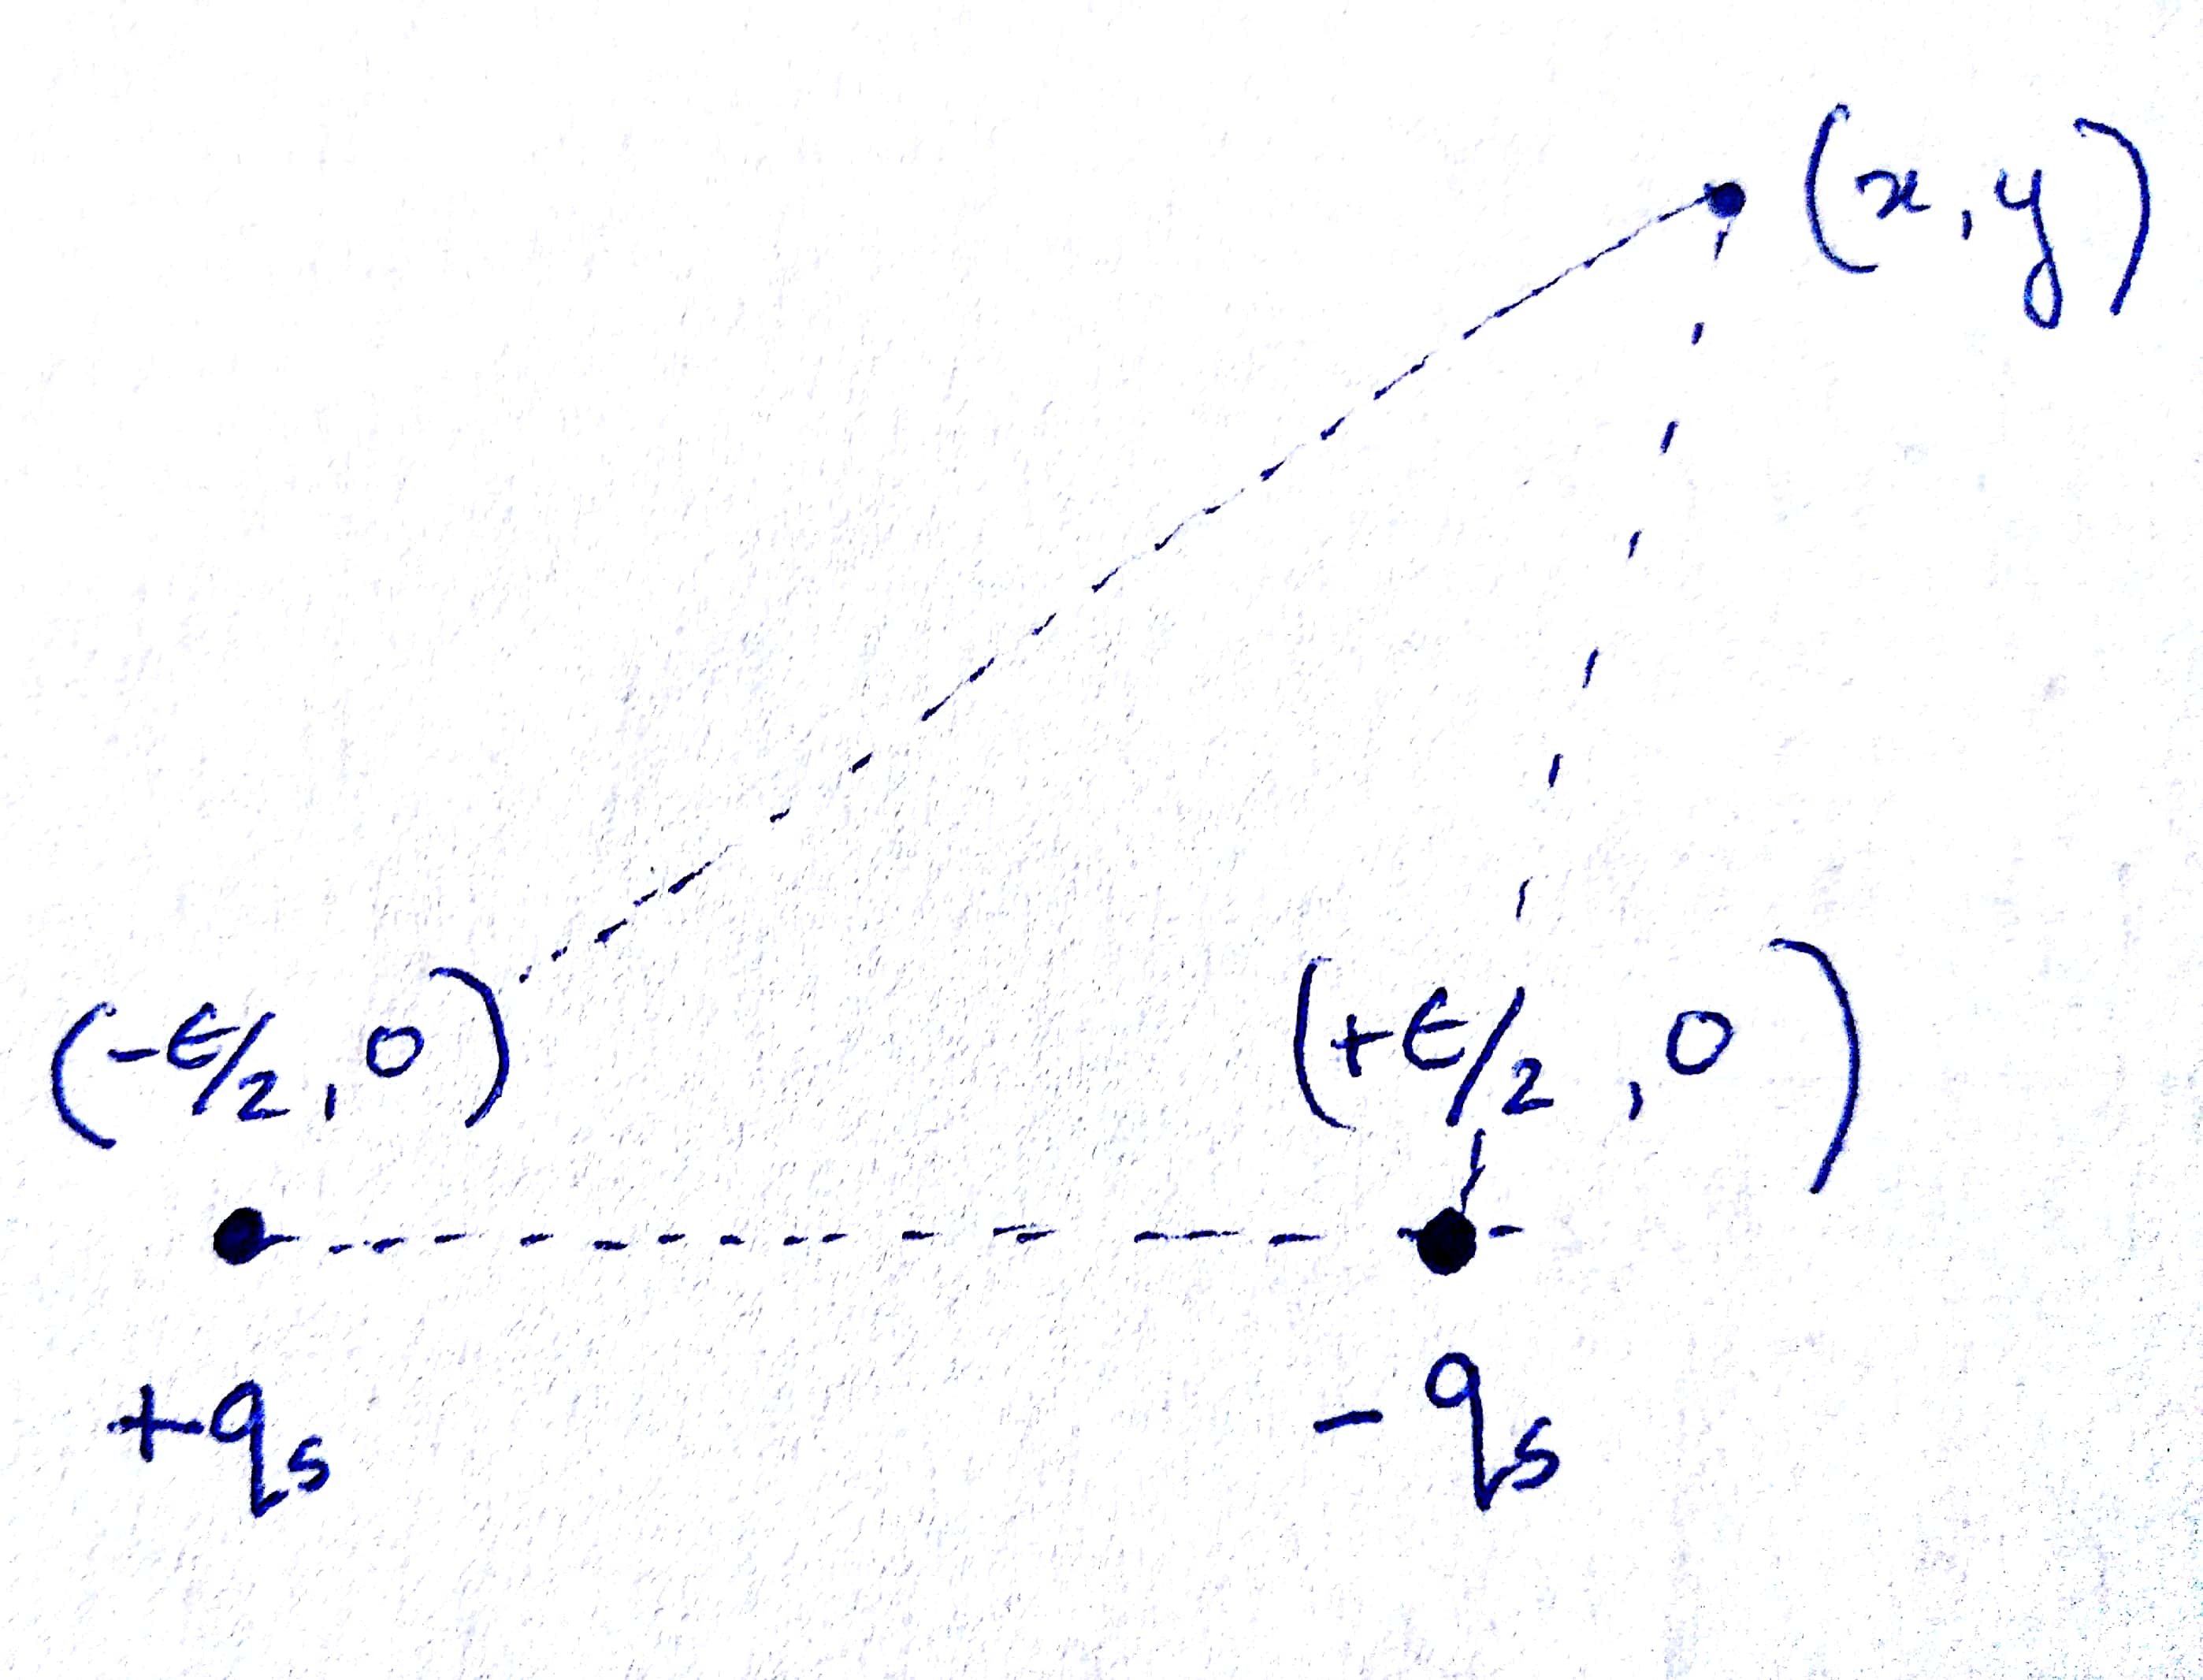 (x, y)
(-ϵ/2, 0) (+ϵ/2, 0)
+q_s - q_s